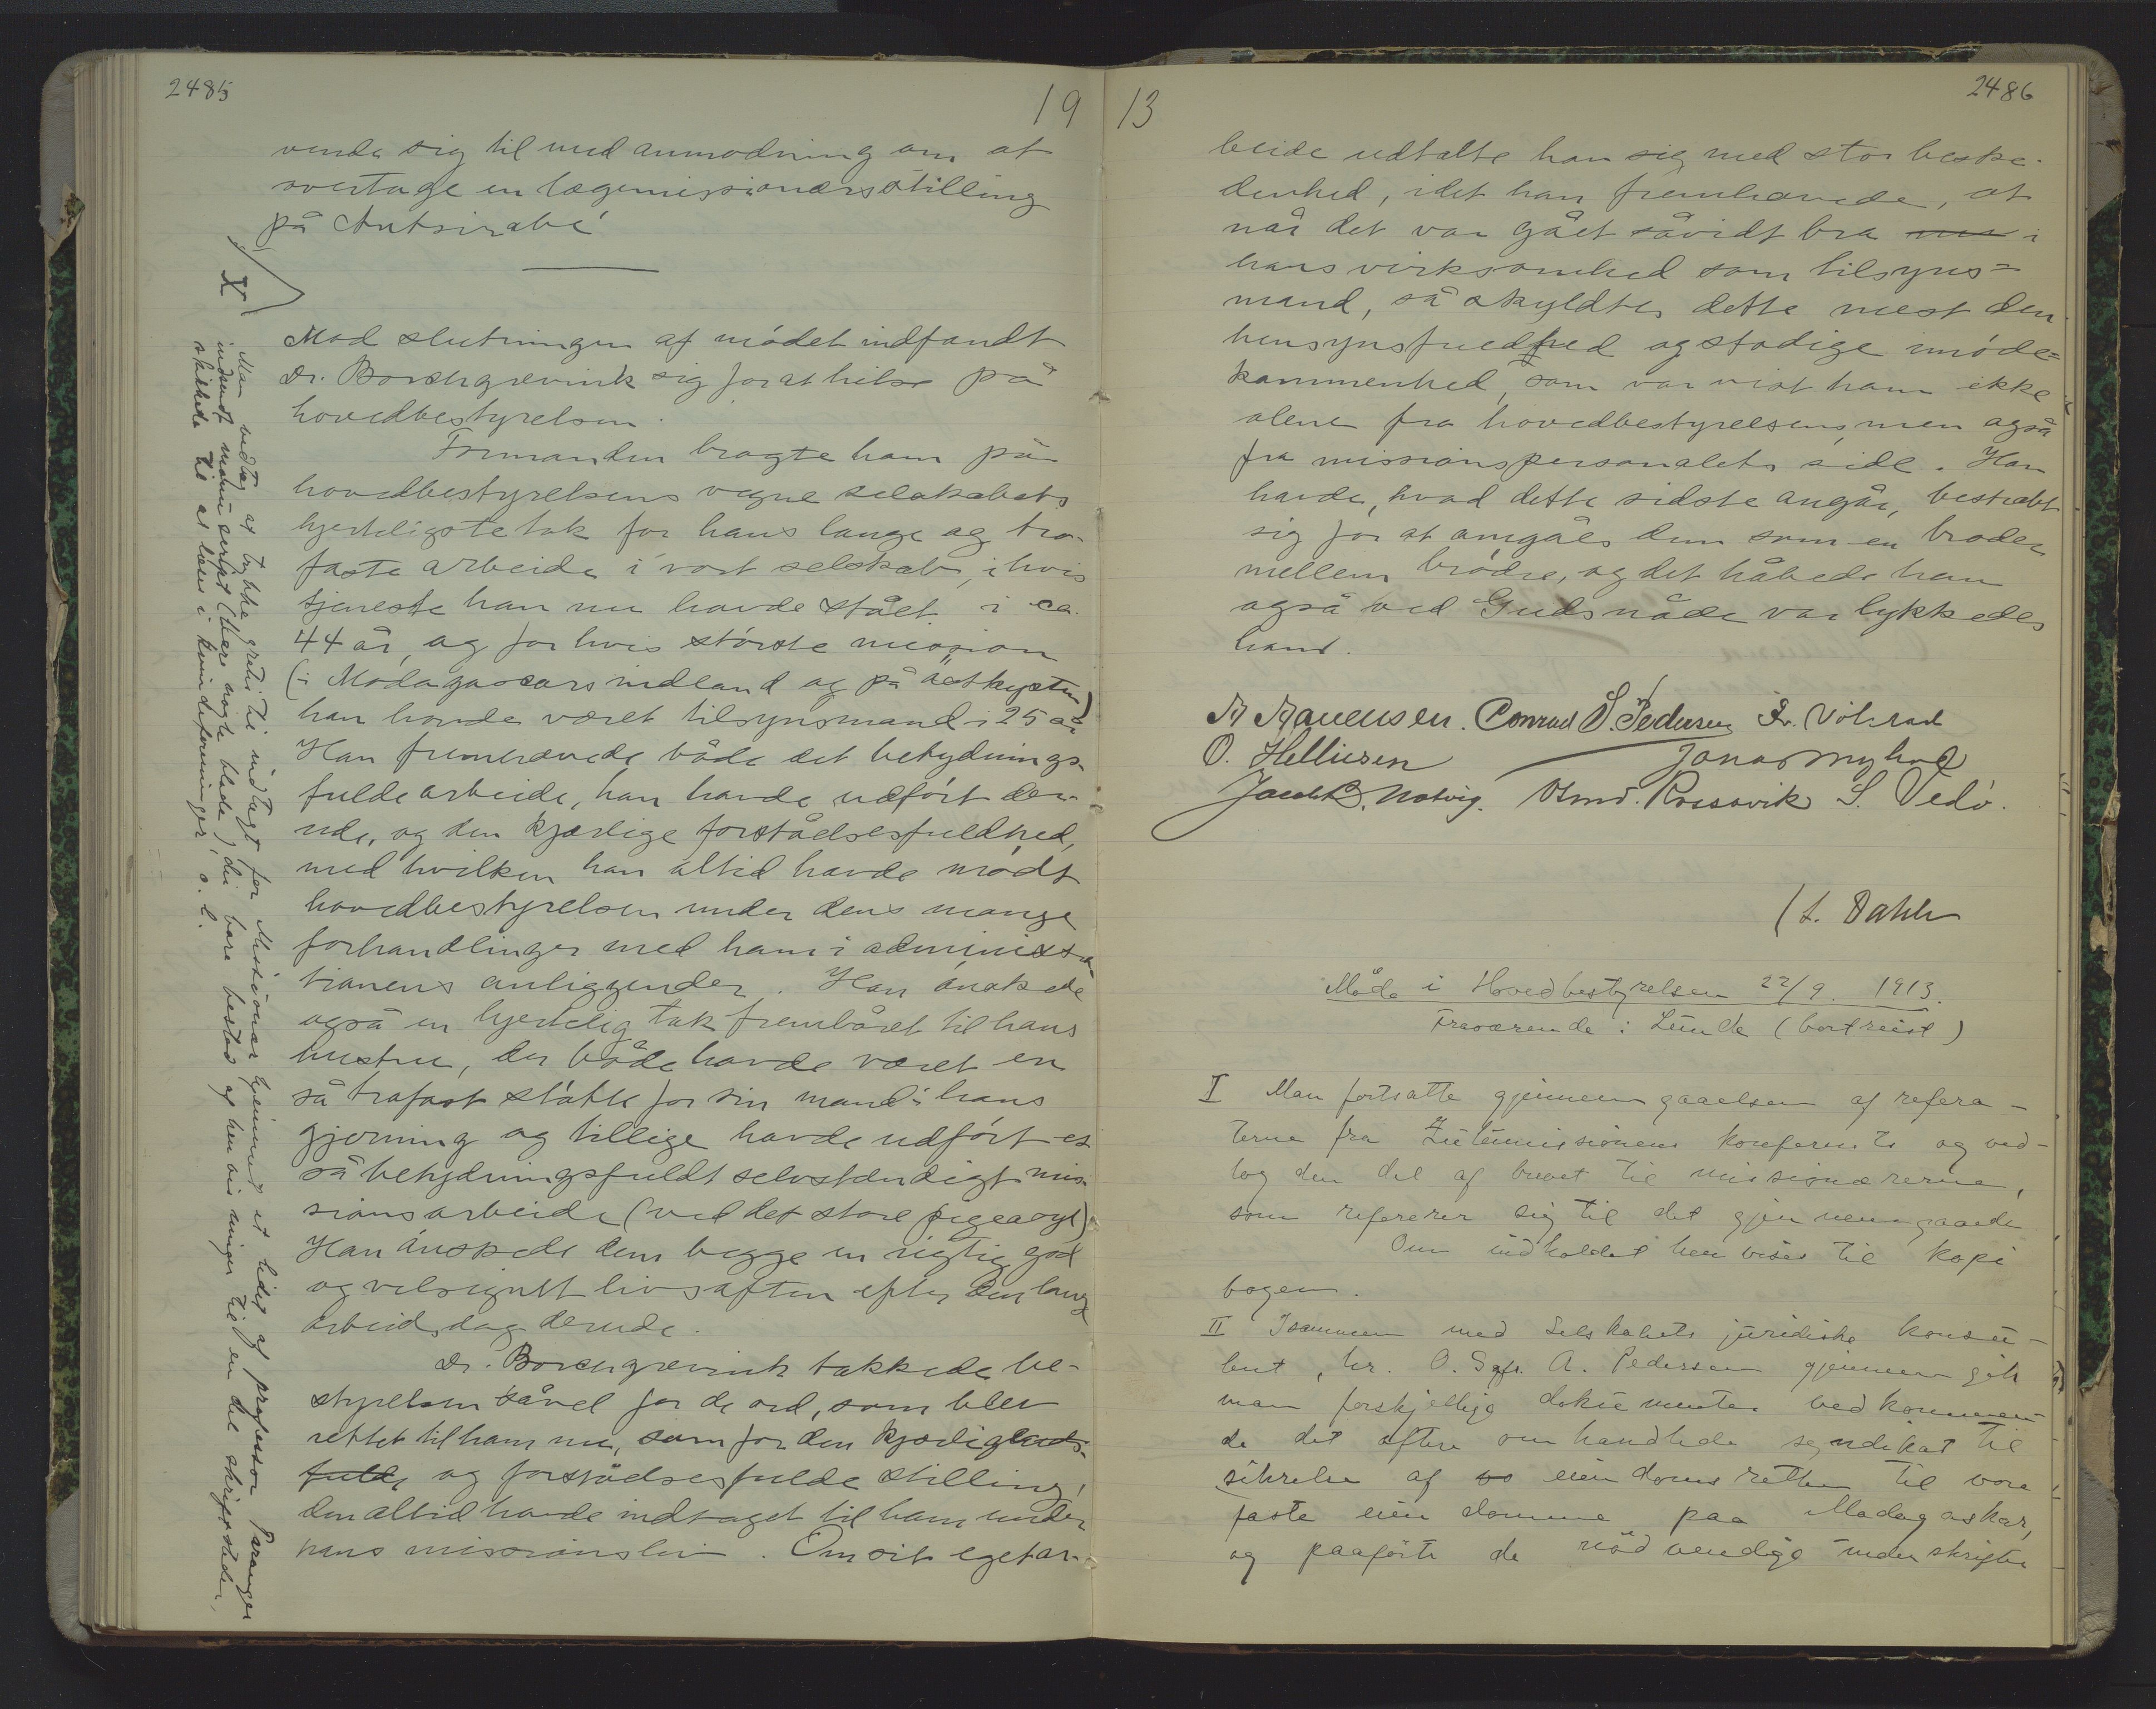 2485
19
vende sig til med anmodning om at
overtage en lægemissionærsstilling
på Antsirabé
X
Man vedtog at trykke gratis til indtægt for Missionær hjemmet et lidet af professor Paranger
indsendt manuscript (flere små blade), der bare bestod af henvisninger til en del skriftsteder,
skikkede til at læses i kvindeforeninger o. l.
Mod slutningen af mødet indfandt
Dr. Borchgrevink sig for at hilse på
hovedbestyrelsen.
Formanden bragte ham på
hovedbestyrelsens vegne selskabets
hjerteligste tak for hans lange og tro-
faste arbeide i vort selskab, i hvis
tjeneste han nu havde stået i ca.
44 år, og for hvis største mission
(i Madagascars indland og på østkysten)
han havde været tilsynsmand i 25 år
Han fremhævede både det betydnings-
fulde arbeide, han havde udført der-
ude, og den kjærlige forståelsesfuldhed,
med hvilken han altid havde mødt
hovedbestyrelsen under dens mange
forhandlinger med ham i administra-
tionens anliggender. Han ønskede
også en hjertelig tak frembåret til hans
hustru, der både havde været en
så trofast støtte for sin mand i hans
gjerning og tillige havde udført et
så betydningsfuldt selvstændigt mis-
sionsarbeide (ved det store pigeasyl)
Han ønskede dem begge en rigtig god
og velsignet livsaften efter den lange
arbeidsdag derude.
Dr. Borchgrevink takkede be-
styrelsen såvel for de ord, som blev
rettet til ham nu, som for den kjærligheds-
fulde og forståelsesfulde stilling,
den altid havde indtaget til ham under
hans missionsliv. Om sit eget ar-
13
2486
beide udtalte han sig med stor beske-
denhed, idet han fremhævede, at
når det var gået såvidt bra i
hans virksomhed som tilsyns-
mand, så skyldtes dette mest den
hensynsfuldhed og stadige imøde-
kommenhed, som var vist ham ikke
alene fra hovedbestyrelsens, men også
fra missionspersonalets side. Han
havde, hvad dette sidste angår, bestræbt
sig for at omgåes dem som en broder
mellem brødre, og det håbede han
også ved Guds nåde var lykkedes
ham.
Conrad S. Pedersen
O. Helliesen Jonas Myhre
Jacob B. Natvig. Osmd. Rossavik S. Vedø.
L. Dahle
Møde i Hovedbestyrelsen 22/9. 1913.
Fraværende: Lunde (bortreist)
I Man fortsatte gjennemgaaelsen af refera-
terne fra Zulumissionens konferents og ved-
tog den del af brevet til missionærerne,
som refererer sig til det gjennemgaaede
Om indholdet henvises til kopi
bogen.
II Isammen med Selskabets juridiske konsu-
lent, hr. O. Sagf. A. Pedersen gjennemgik
man forskjellige dokumenter vedkommen-
de det oftere omhandlede syndikat til
sikrelse af eiendomsretten til vore
faste eiendomme paa Madagaskar,
og paaførte de nødvendige underskrifter